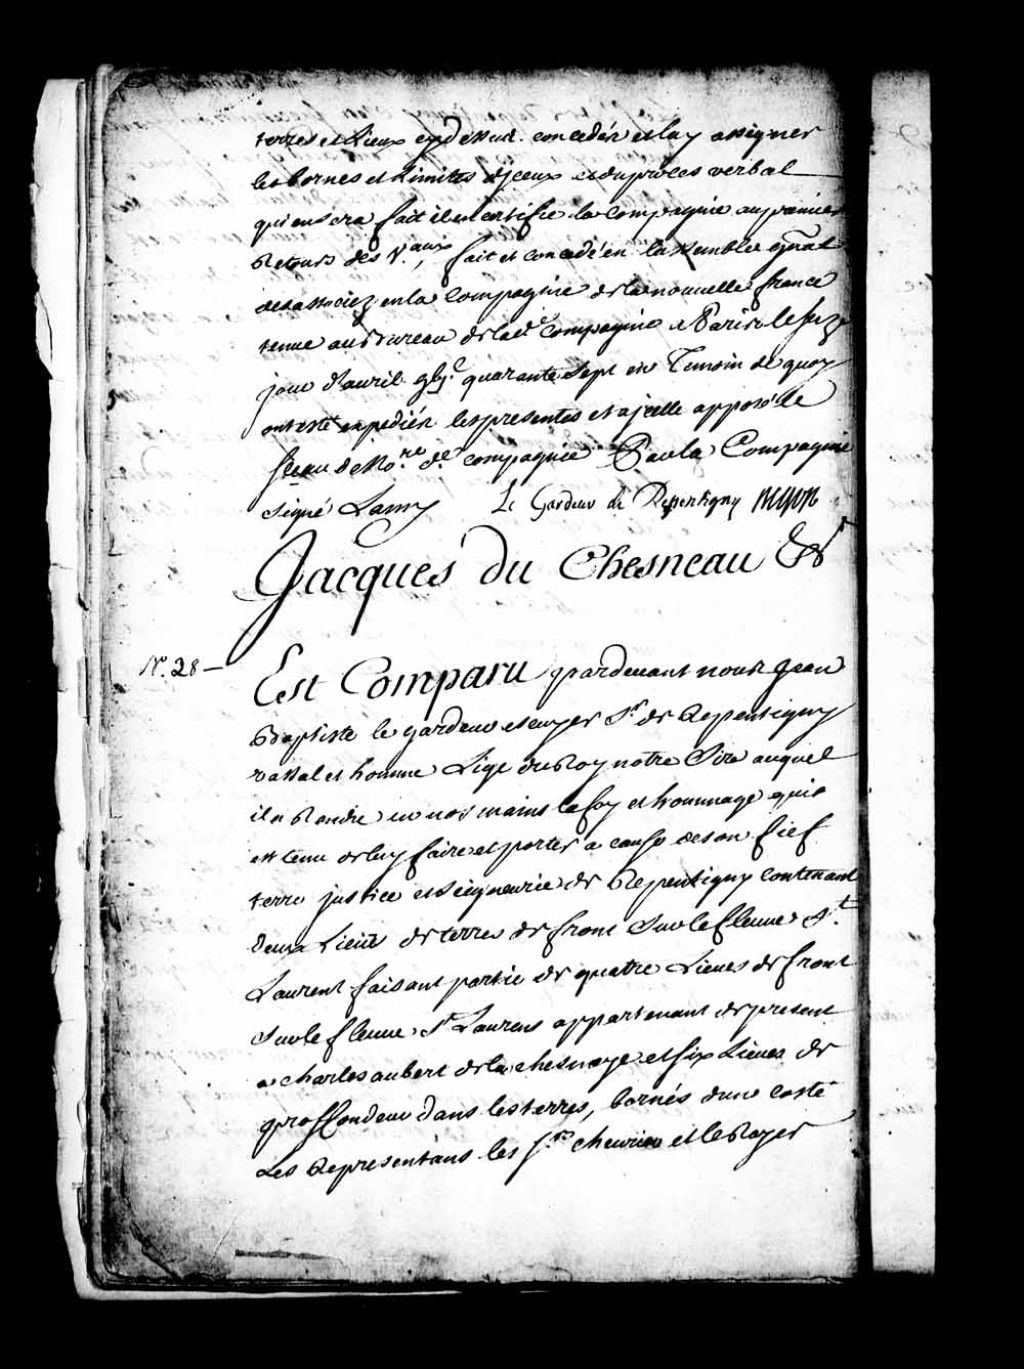 terres et Lieux cy dessus concedés et luy assigner
les bornes et Limittes d'jceux et du procès verbal
qui en sera fait il en certifie la Compagnie au premier
Retour des V.aux, fait et concedé en lassemblée gnãl
des associez en la Compagnie de la nouvelle france
tenue au Bureau de lad.e compagnie a Paris le seize
jour d'auril gbj.c quarante sept en Temoin de quoy
ont esté expediés les presentes et a jcelle apposé le
sceau de No.re d.e compagnie Par la Compagnie
signé Lamy Le Gardeur de Repentigny
Jacques du Chesneau &
N.o 28 — Est Comparu pardeuant nous Jean
Baptiste le gardeur escuyer S.r de Repentigny
vassal et homme Lige du Roy notre Sire auquel
il a Rendu en nos mains la foy et hommage quil
est tenu de luy faire et porter a cause de son fief
terre justice et seigneurie de Repentigny contenant
deux Lieües de terres de front sur le fleuue S.t
Laurent faisant partie de quatre Lieues de front
sur le fleuue S.t Laurens appartenant de present
a Charles aubert de la chesnaye et six Lieues de
proffondeur dans les terres, bornés d'un costé
Les Representans les S.rs cheurier et le Royer